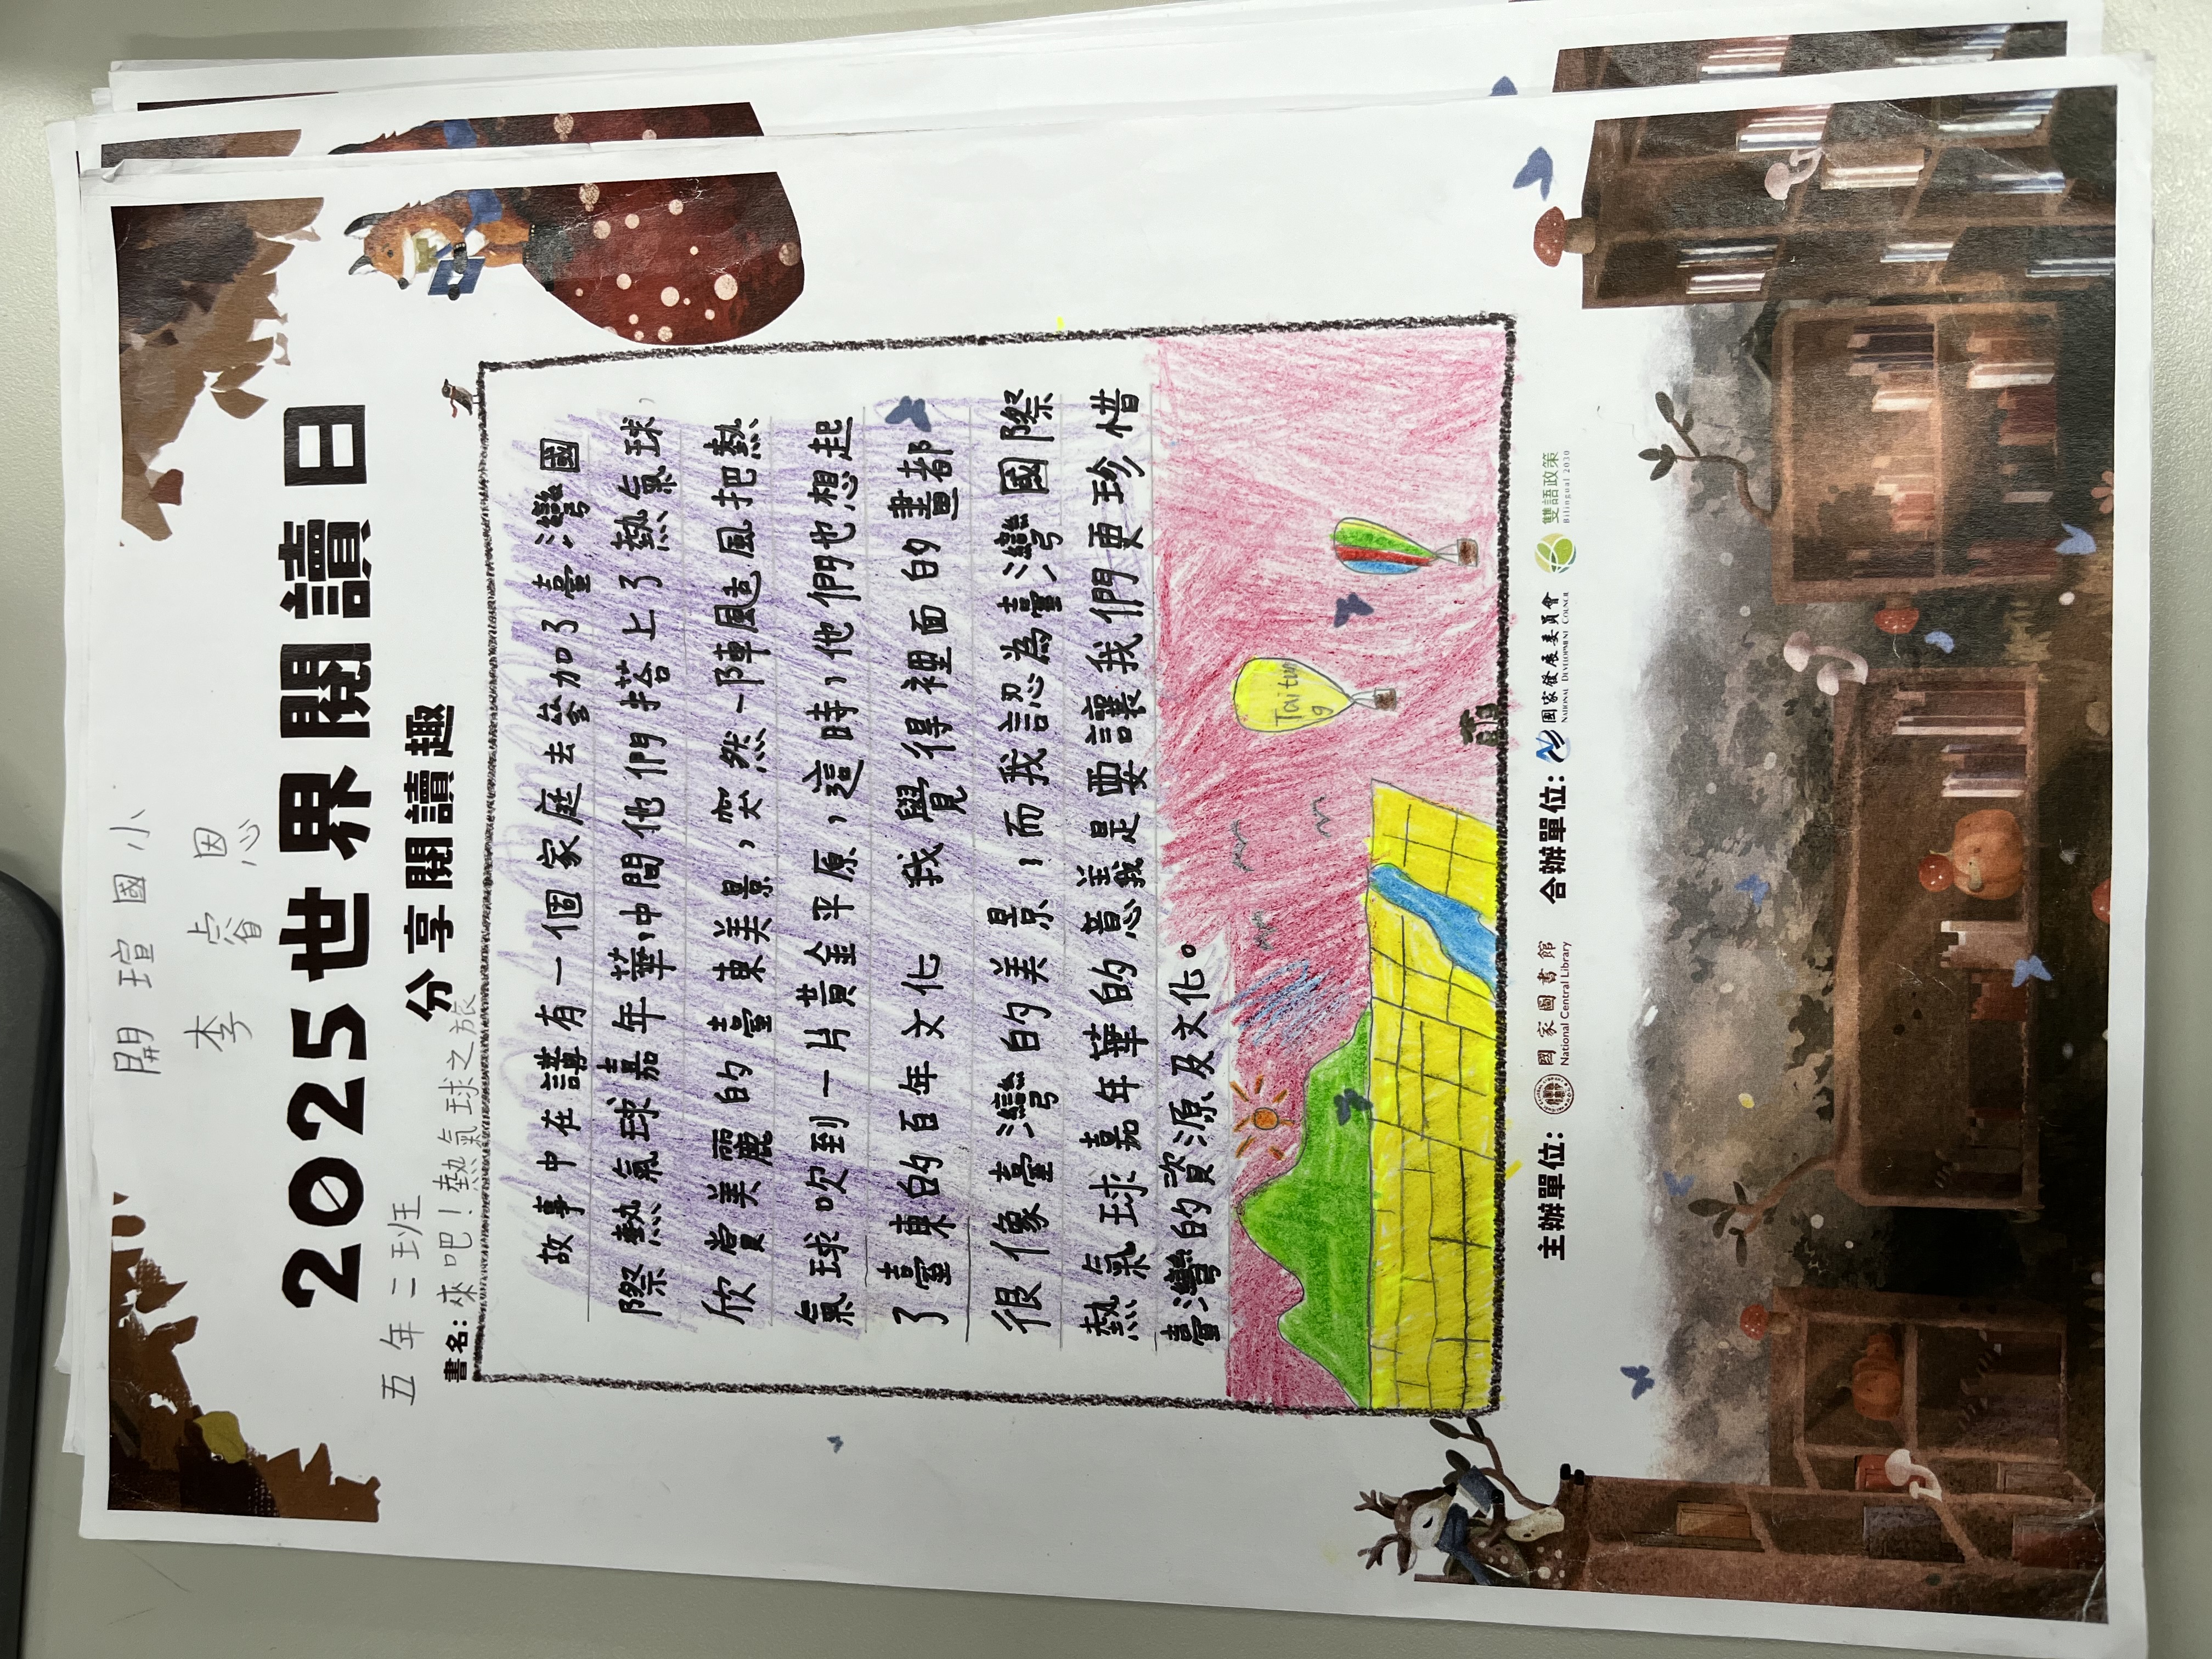 開瑄國小
李睿恩
2025世界閱讀日
分享閱讀趣
五年二班
書名:來吧!熱氣球之旅
故事中在講有一個家庭去參加了臺灣國
際熱氣球嘉年華,中間他們搭上了熱氣球,
欣賞美麗的臺東美景,突然一陣風迼風把熱
氣球吹到一片黃金平原,這時,他們也想起
了臺東的百年文化 我覺得裡面的畫都
很像臺灣的美景,而我認為臺灣國際
熱氣球嘉年華的意義是要讓我們更珍惜
臺灣的資源及文化。
Taitung
主辦單位: 國家圖書館 National Central Library 合辦單位: 國家發展委員會 National Development Council 雙語政策 Bilingual 2030